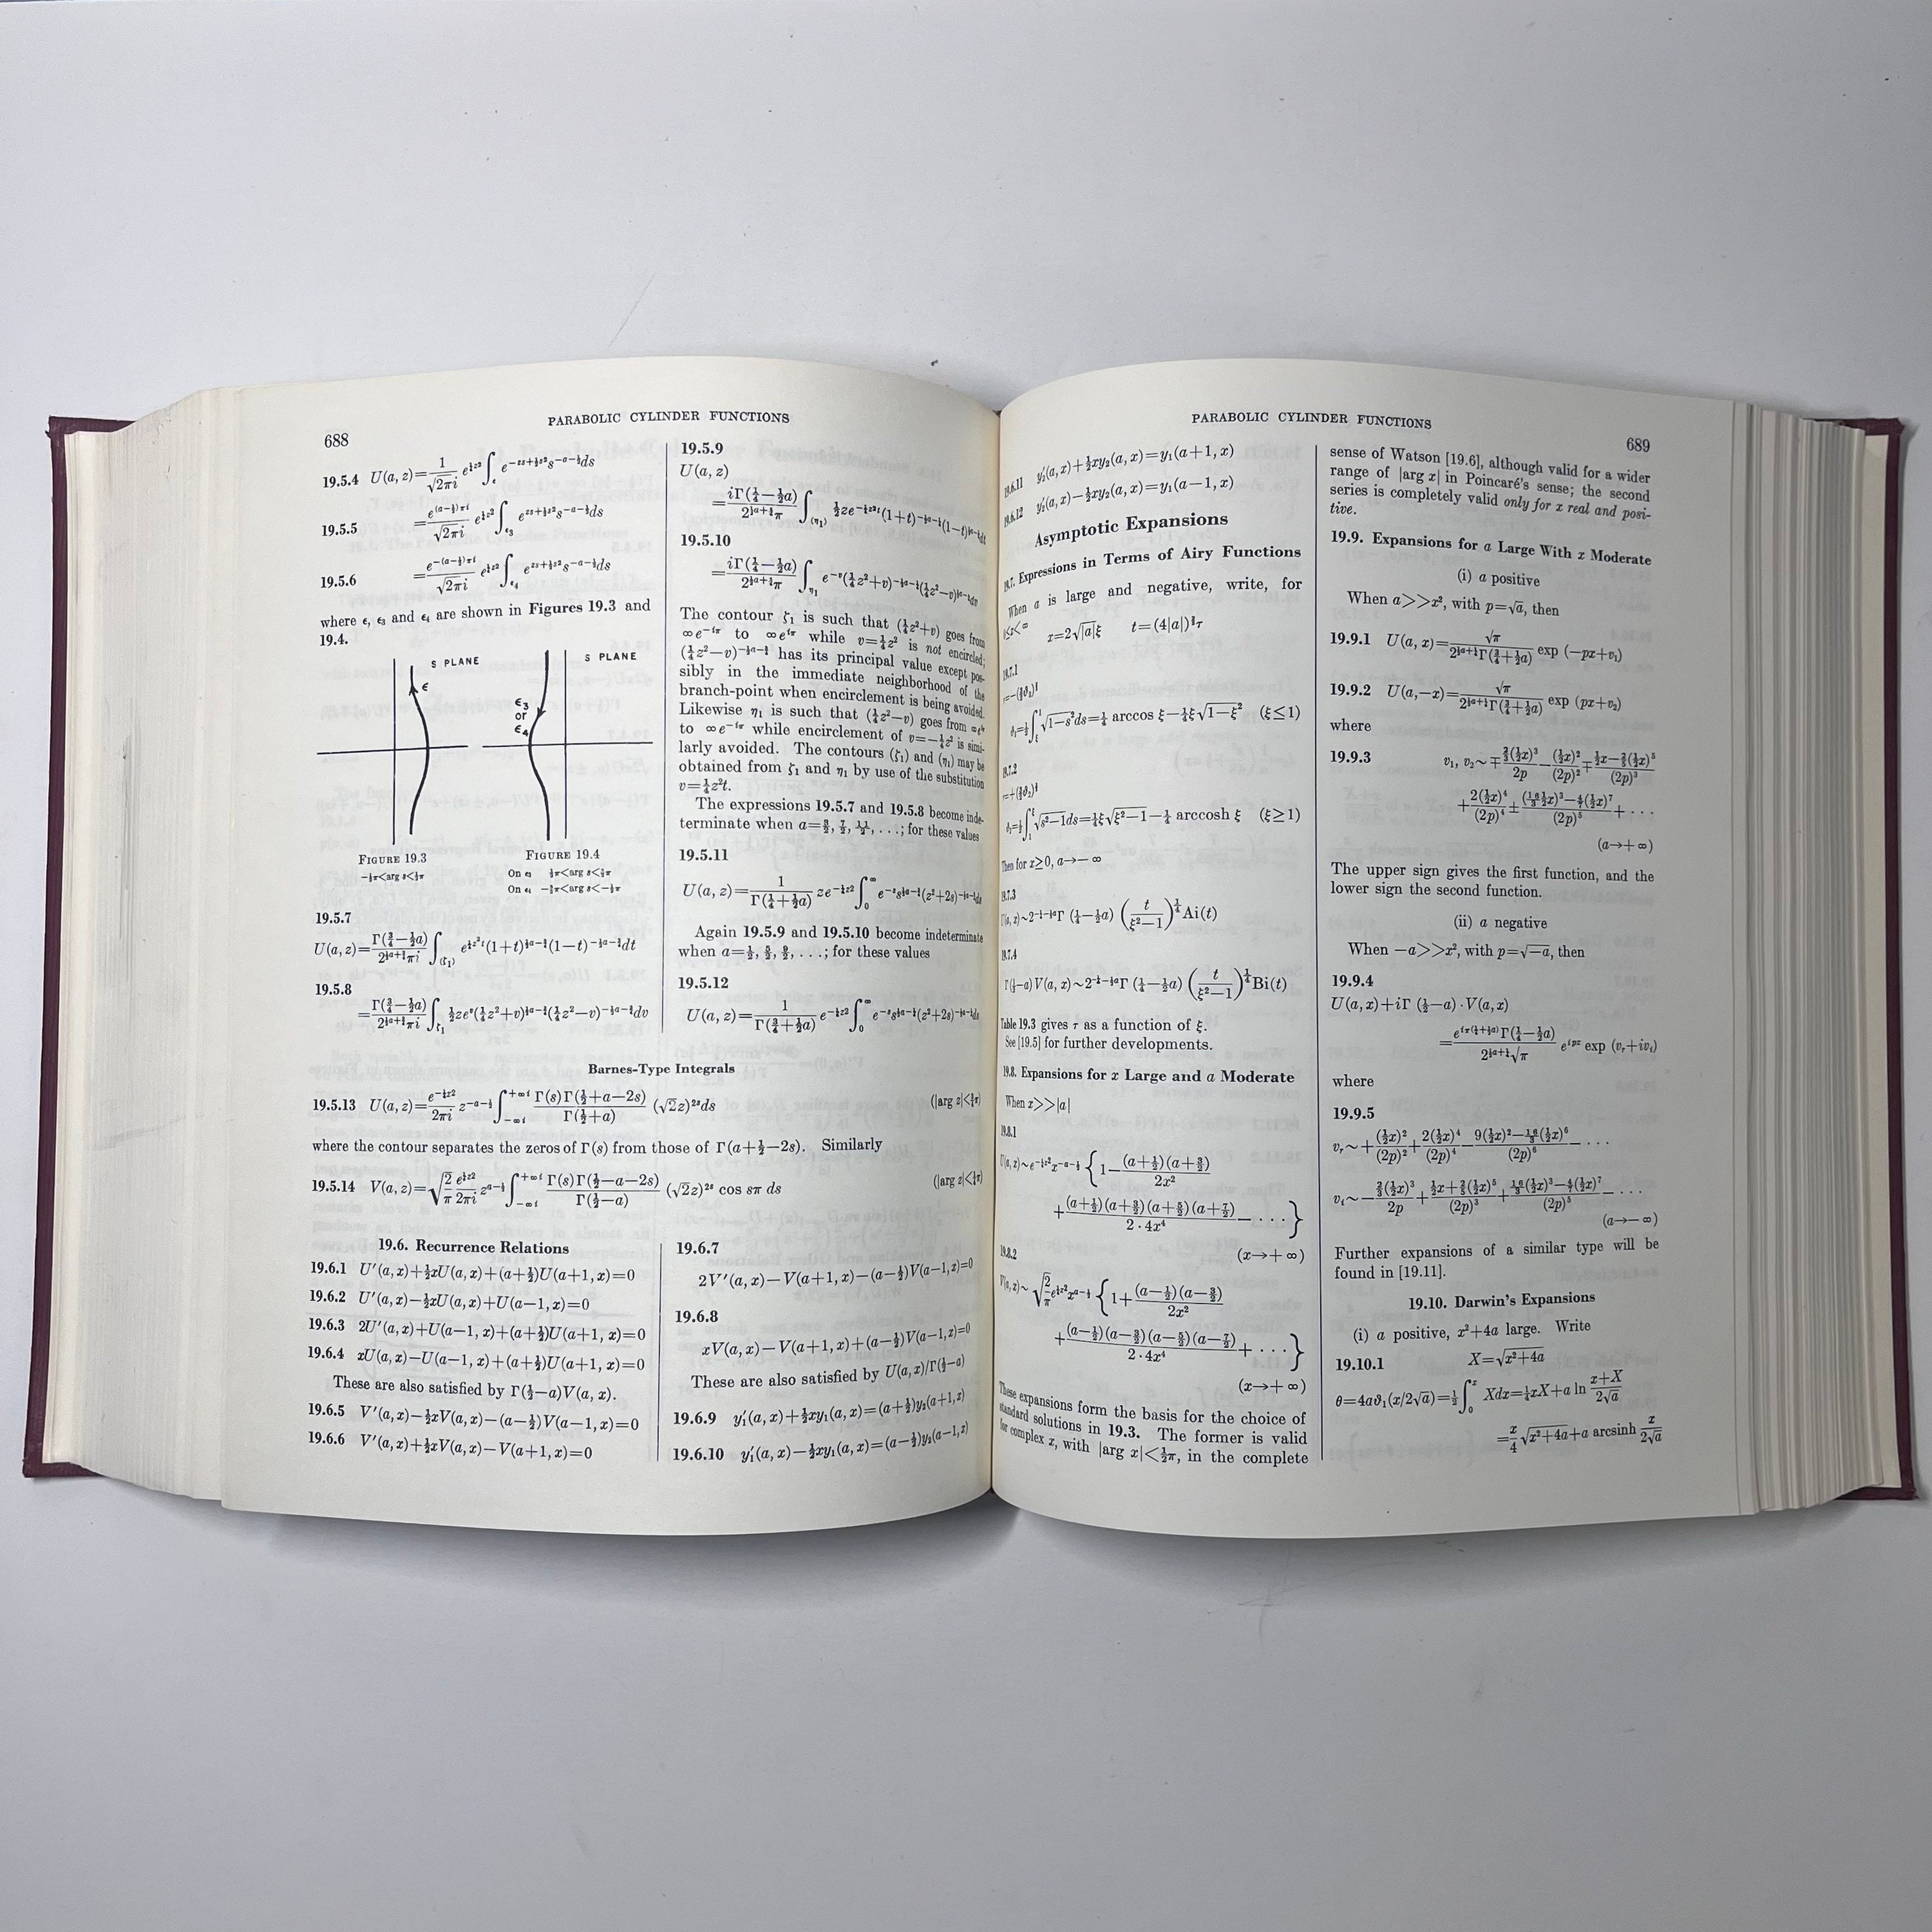 PARABOLIC CYLINDER FUNCTIONS
688
19.5.4 U(a, z)=1/√2πi e^¼z² ∫_ϵ e^−zs+½s² s^−a−½ ds
19.5.5 =e^(a−½)πi/√2πi e^¼z² ∫_ϵ3 e^zs+½s² s^−a−½ ds
19.5.6 =e^−(a−½)πi/√2πi e^¼z² ∫_ϵ4 e^zs+½s² s^−a−½ ds
where ϵ, ϵ3 and ϵ4 are shown in Figures 19.3 and
19.4.
S PLANE
ϵ
S PLANE
ϵ3
or
ϵ4
FIGURE 19.3
−½π<arg s<½π
FIGURE 19.4
On ϵ3 ½π<arg s<3/2π
On ϵ4 −3/2π<arg s<−½π
19.5.7
U(a, z)=Γ(¾−½a)/2^½a+¾πi ∫_(ζ1) e^¼z²t(1+t)^½a−¾(1−t)^−½a−¾dt
19.5.8
=Γ(¾−½a)/2^½a+¾πi ∫_ζ1 ½ze^v(¼z²+v)^½a−¾(¼z²−v)^−½a−¾dv
19.5.9
U(a, z)
=iΓ(¼−½a)/2^½a+¼π ∫_(η1) ½ze^−¼z²t(1+t)^−½a−¼(1−t)^½a−¼dt
19.5.10
=iΓ(¼−½a)/2^½a+¼π ∫_η1 e^−v(¼z²+v)^−½a−¼(¼z²−v)^½a−¼dv
The contour ζ1 is such that (¼z²+v) goes from
∞e^−iπ to ∞e^iπ while v=¼z² is not encircled;
(¼z²−v)^−½a−¾ has its principal value except pos-
sibly in the immediate neighborhood of the
branch-point when encirclement is being avoided.
Likewise η1 is such that (¼z²−v) goes from ∞e^iπ
to ∞e^−iπ while encirclement of v=−¼z² is simi-
larly avoided. The contours (ζ1) and (η1) may be
obtained from ζ1 and η1 by use of the substitution
v=¼z²t.
The expressions 19.5.7 and 19.5.8 become inde-
terminate when a=3/2, 7/2, 11/2, . . .; for these values
19.5.11
U(a, z)=1/Γ(¼+½a) ze^−¼z² ∫_0^∞ e^−s s^½a−¾(z²+2s)^−½a−¾ds
Again 19.5.9 and 19.5.10 become indeterminate
when a=1/2, 5/2, 9/2, . . .; for these values
19.5.12
U(a, z)=1/Γ(¾+½a) e^−¼z² ∫_0^∞ e^−s s^½a−¼(z²+2s)^−½a−¼ds
Barnes-Type Integrals
19.5.13 U(a, z)=e^−¼z²/2πi z^−a−½ ∫_−∞i^+∞i Γ(s)Γ(½+a−2s)/Γ(½+a) (√2z)^2s ds (|arg z|<¾π)
where the contour separates the zeros of Γ(s) from those of Γ(a+½−2s). Similarly
19.5.14 V(a, z)=√2/π e^¼z²/2πi z^a−½ ∫_−∞i^+∞i Γ(s)Γ(½−a−2s)/Γ(½−a) (√2z)^2s cos sπ ds (|arg z|<¼π)
19.6. Recurrence Relations
19.6.1 U′(a, x)+½xU(a, x)+(a+½)U(a+1, x)=0
19.6.2 U′(a, x)−½xU(a, x)+U(a−1, x)=0
19.6.3 2U′(a, x)+U(a−1, x)+(a+½)U(a+1, x)=0
19.6.4 xU(a, x)−U(a−1, x)+(a+½)U(a+1, x)=0
These are also satisfied by Γ(½−a)V(a, x).
19.6.5 V′(a, x)−½xV(a, x)−(a−½)V(a−1, x)=0
19.6.6 V′(a, x)+½xV(a, x)−V(a+1, x)=0
19.6.7
2V′(a, x)−V(a+1, x)−(a−½)V(a−1, x)=0
19.6.8
xV(a, x)−V(a+1, x)+(a−½)V(a−1, x)=0
These are also satisfied by U(a, x)/Γ(½−a)
19.6.9 y′1(a, x)+½xy1(a, x)=(a+½)y2(a+1, x)
19.6.10 y′1(a, x)−½xy1(a, x)=(a−½)y2(a−1, x)
PARABOLIC CYLINDER FUNCTIONS
689
19.6.11 y′2(a, x)+½xy2(a, x)=y1(a+1, x)
19.6.12 y′2(a, x)−½xy2(a, x)=y1(a−1, x)
Asymptotic Expansions
19.7. Expressions in Terms of Airy Functions
When a is large and negative, write, for
0≤x<∞
x=2√|a|ξ t=(4|a|)^⅔τ
19.7.1
τ=−(3/2ϑ3)^⅔
ϑ3=½∫_ξ^1 √1−s² ds=¼ arccos ξ−¼ξ√1−ξ² (ξ≤1)
19.7.2
τ=+(3/2ϑ2)^⅔
ϑ2=½∫_1^ξ √s²−1 ds=¼ξ√ξ²−1−¼ arccosh ξ (ξ≥1)
Then for x≥0, a→−∞
19.7.3
U(a, x)∼2^−¼−½aΓ(¼−½a)(t/ξ²−1)^¼Ai(t)
19.7.4
Γ(½−a)V(a, x)∼2^−¼−½aΓ(¼−½a)(t/ξ²−1)^¼Bi(t)
Table 19.3 gives τ as a function of ξ.
See [19.5] for further developments.
19.8. Expansions for x Large and a Moderate
When x>>|a|
19.8.1
U(a, x)∼e^−¼x²x^−a−½{1−(a+½)(a+3/2)/2x²
+(a+½)(a+3/2)(a+5/2)(a+7/2)/2·4x⁴− . . .}
(x→+∞)
19.8.2
V(a, x)∼√2/π e^¼x²x^a−½{1+(a−½)(a−3/2)/2x²
+(a−½)(a−3/2)(a−5/2)(a−7/2)/2·4x⁴+ . . .}
(x→+∞)
These expansions form the basis for the choice of
standard solutions in 19.3. The former is valid
for complex x, with |arg x|<½π, in the complete
sense of Watson [19.6], although valid for a wider
range of |arg x| in Poincaré's sense; the second
series is completely valid only for x real and posi-
tive.
19.9. Expansions for a Large With x Moderate
(i) a positive
When a>>x², with p=√a, then
19.9.1 U(a, x)=√π/2^½a+¼Γ(¾+½a) exp (−px+v1)
19.9.2 U(a,−x)=√π/2^½a+¼Γ(¾+½a) exp (px+v2)
where
19.9.3 v1, v2∼∓⅔(½x)³/2p−(½x)²/(2p)²∓½x−⅖(½x)⁵/(2p)³
+2(½x)⁴/(2p)⁴±(16/3½x)³−4/7(½x)⁷/(2p)⁵+ . . .
(a→+∞)
The upper sign gives the first function, and the
lower sign the second function.
(ii) a negative
When −a>>x², with p=√−a, then
19.9.4
U(a, x)+iΓ(½−a)·V(a, x)
=e^iπ(¼+½a)Γ(¼−½a)/2^½a+¼√π e^ipx exp (vr+ivi)
where
19.9.5
vr∼+(½x)²/(2p)²+2(½x)⁴/(2p)⁴−9(½x)²−16/3(½x)⁶/(2p)⁶− . . .
vi∼−⅔(½x)³/2p+½x+⅖(½x)⁵/(2p)³+16/3(½x)³−4/7(½x)⁷/(2p)⁵− . . .
(a→−∞)
Further expansions of a similar type will be
found in [19.11].
19.10. Darwin's Expansions
(i) a positive, x²+4a large. Write
19.10.1 X=√x²+4a
θ=4aϑ1(x/2√a)=½∫_0^x Xdx=¼xX+a ln x+X/2√a
=x/4 √x²+4a+a arcsinh x/2√a